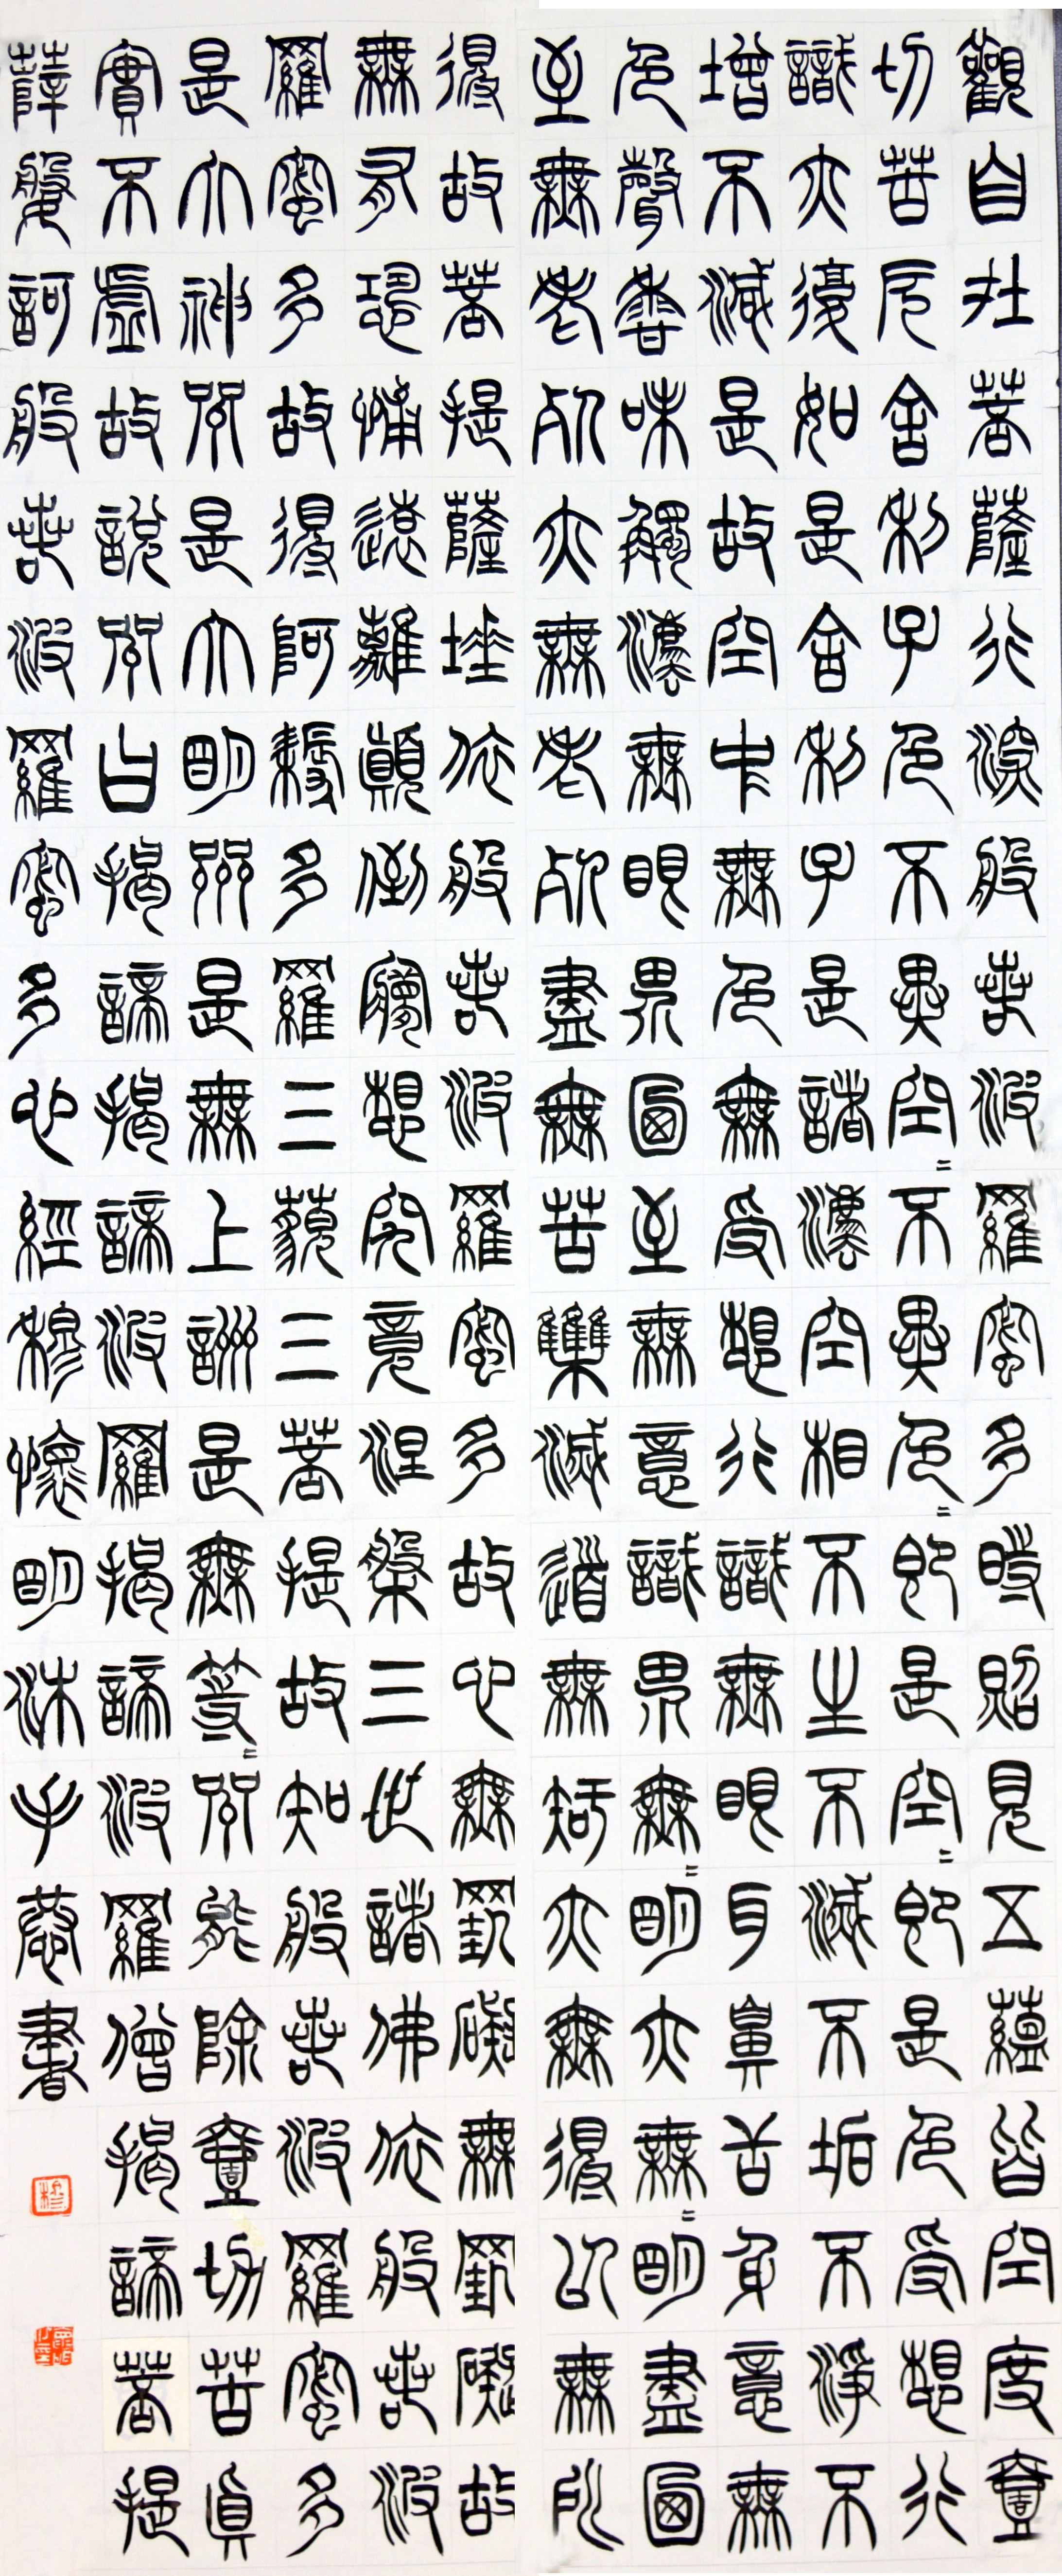 觀自在菩薩行深般若波羅蜜多時照見五蘊皆空度壹
切苦厄舍利子色不異空〻不異色〻即是空〻即是色受想行
識亦復如是舍利子是諸法空相不生不滅不垢不淨不
增不減是故空中無色無受想行識無眼耳鼻舌身意無
色聲香味觸法無眼界乃至無意識界無〻明亦無〻明盡乃
至無老死亦無老死盡無苦集滅道無智亦無得以無所
得故菩提薩埵依般若波羅蜜多故心無罣礙無罣礙故
無有恐怖遠離顛倒夢想究竟涅槃三世諸佛依般若波
羅蜜多故得阿耨多羅三藐三菩提故知般若波羅蜜多
是大神咒是大明咒是無上咒是無等〻咒能除壹切苦真
實不虛故說咒曰揭諦揭諦波羅揭諦波羅僧揭諦菩提
薩婆訶般若波羅蜜多心經穆懷明沐手恭書